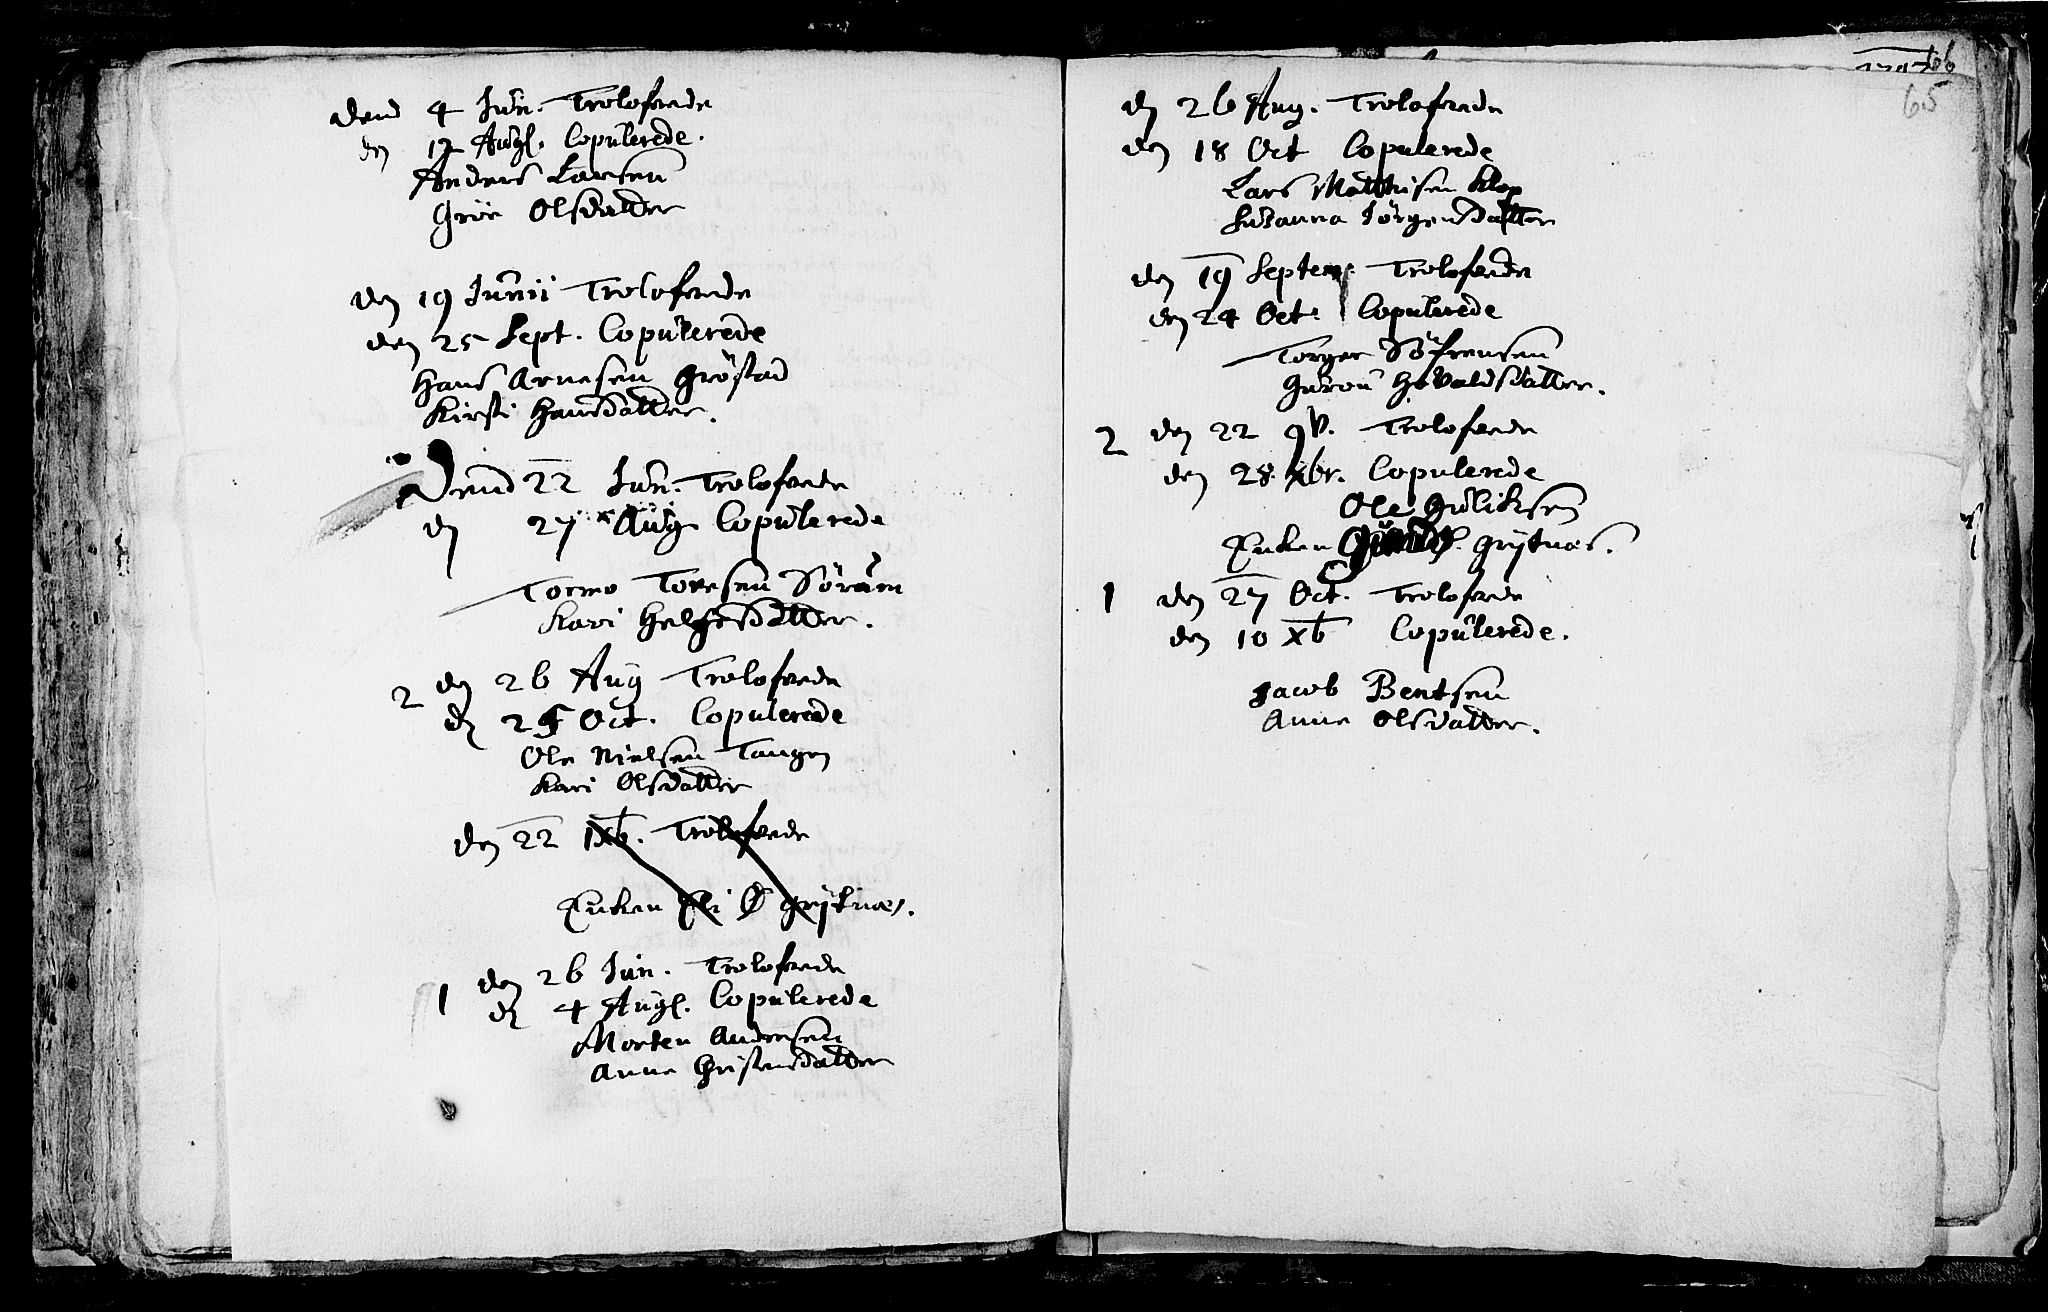 dend 4 Jun. Trolofvede
den 12 Augl. Copulerede.
Anders Larsen
Groe Olsdatter
den 19 Junii Trolofvede
den 25 Sept. Copulerede
Hans Arnesen Gröstad
Kirsti Hansdatter.
Dend 22 Jun. Trolofvede
den 27 Aug Copulerede
Tormo Toresen Söraam
Kari Helgesdatter.
2 den 26 Aug Trolofvede
den Oct. Copulerede
Ole Nielsen Tangen
Kari Olsdatter
den 22 Trolofvede
Enken Eli Grytnæs.
1 den 26 Jun. Trolofvede
den 4 Augl. Copulerede
Morten Andersen
Anne Christensdatter
66
65
den 26 Aug. Trolofvede
den 18 Oct Copulerede
Lars Matthisen Klop
Susanna Jörgensdatter
den 19 Septem. Trolofvede
den 24 Oct. Copulerede
Torger Söfrensen
Guron
2 den 22 9b. Trolofvede
den 28 xbr. Copulerede
Ole Guliksen
Enken Grytnæs.
1 den 27 Oct. Trolofvede
den 10 xb Copulerede.
Jacob Bentsen
Anne Olsdatter.